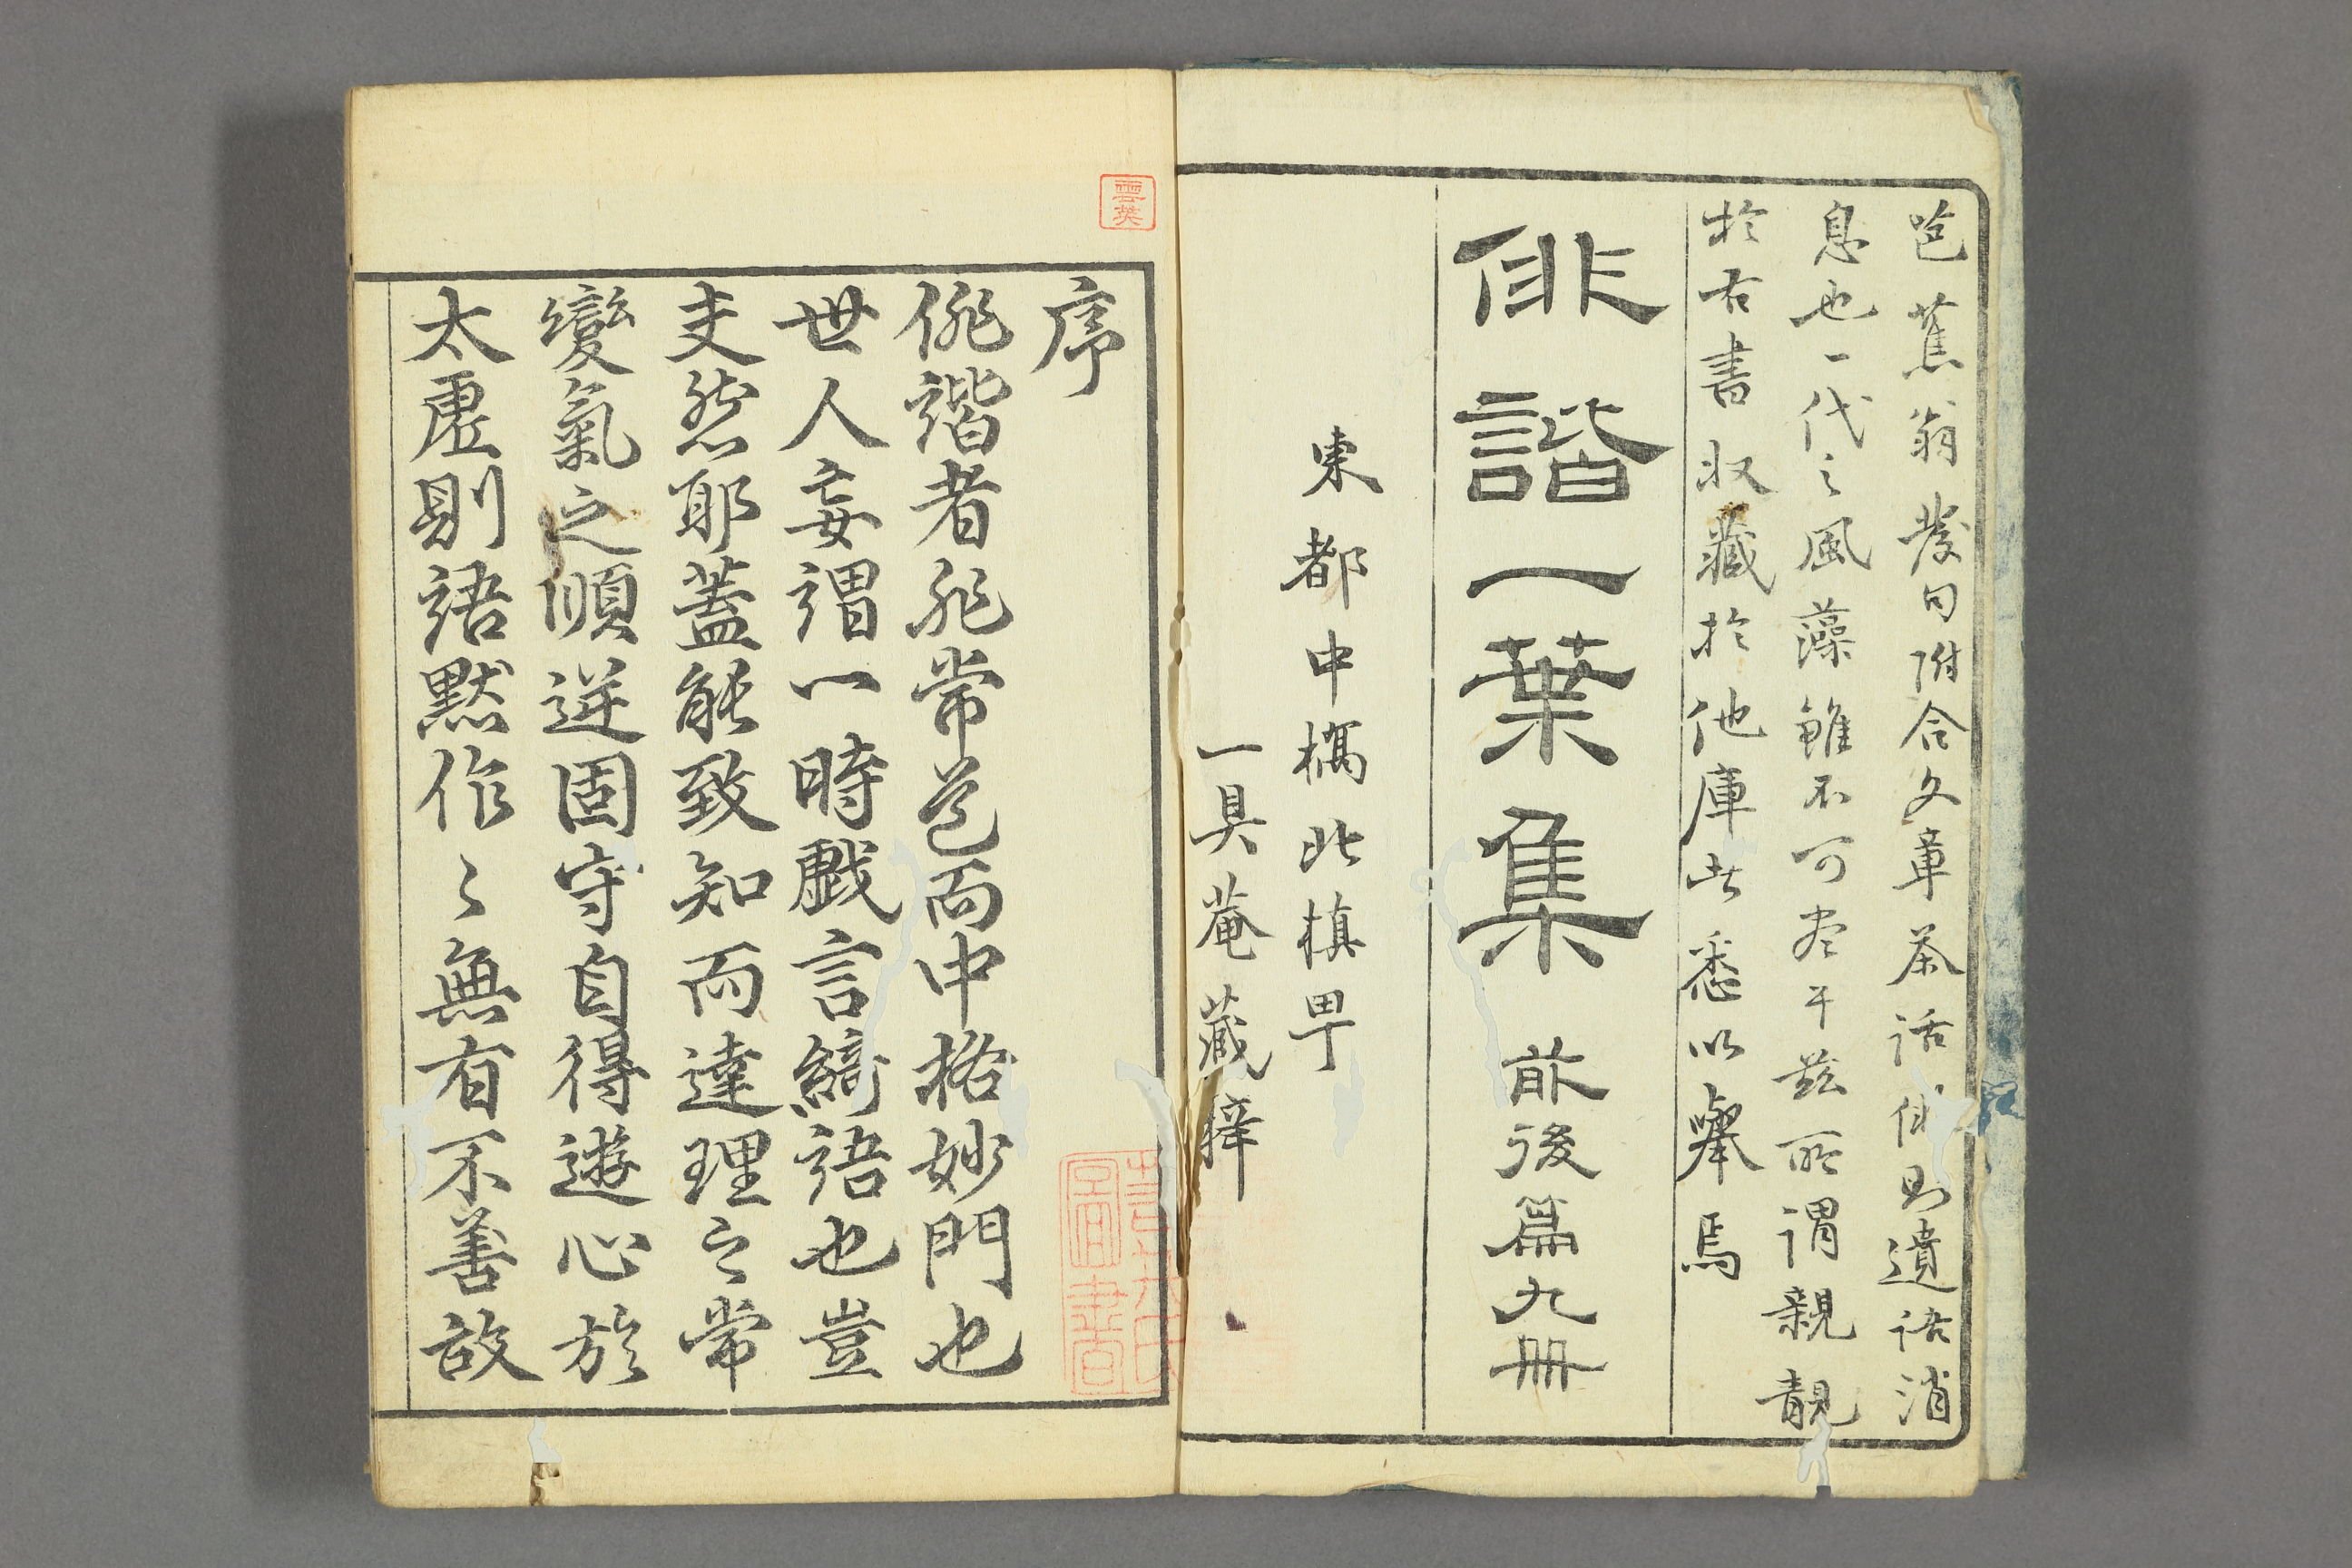 芭蕉翁發句附合文章茶話俳則遺語消
息也一代之風藻雖不可尽于茲所謂親覩
於古書收藏於他庫者悉以擧焉
俳諧一葉集 前後篇九冊
東都中橋北槙甼
一具菴蔵梓
雲英
序
俳諧者非常道而中格妙門也
世人妄謂一時戯言綺語也豈
夫然耶蓋能致知而達理之常
變氣之順逆固守自得遊心於
太虛則語默作〻無有不善故